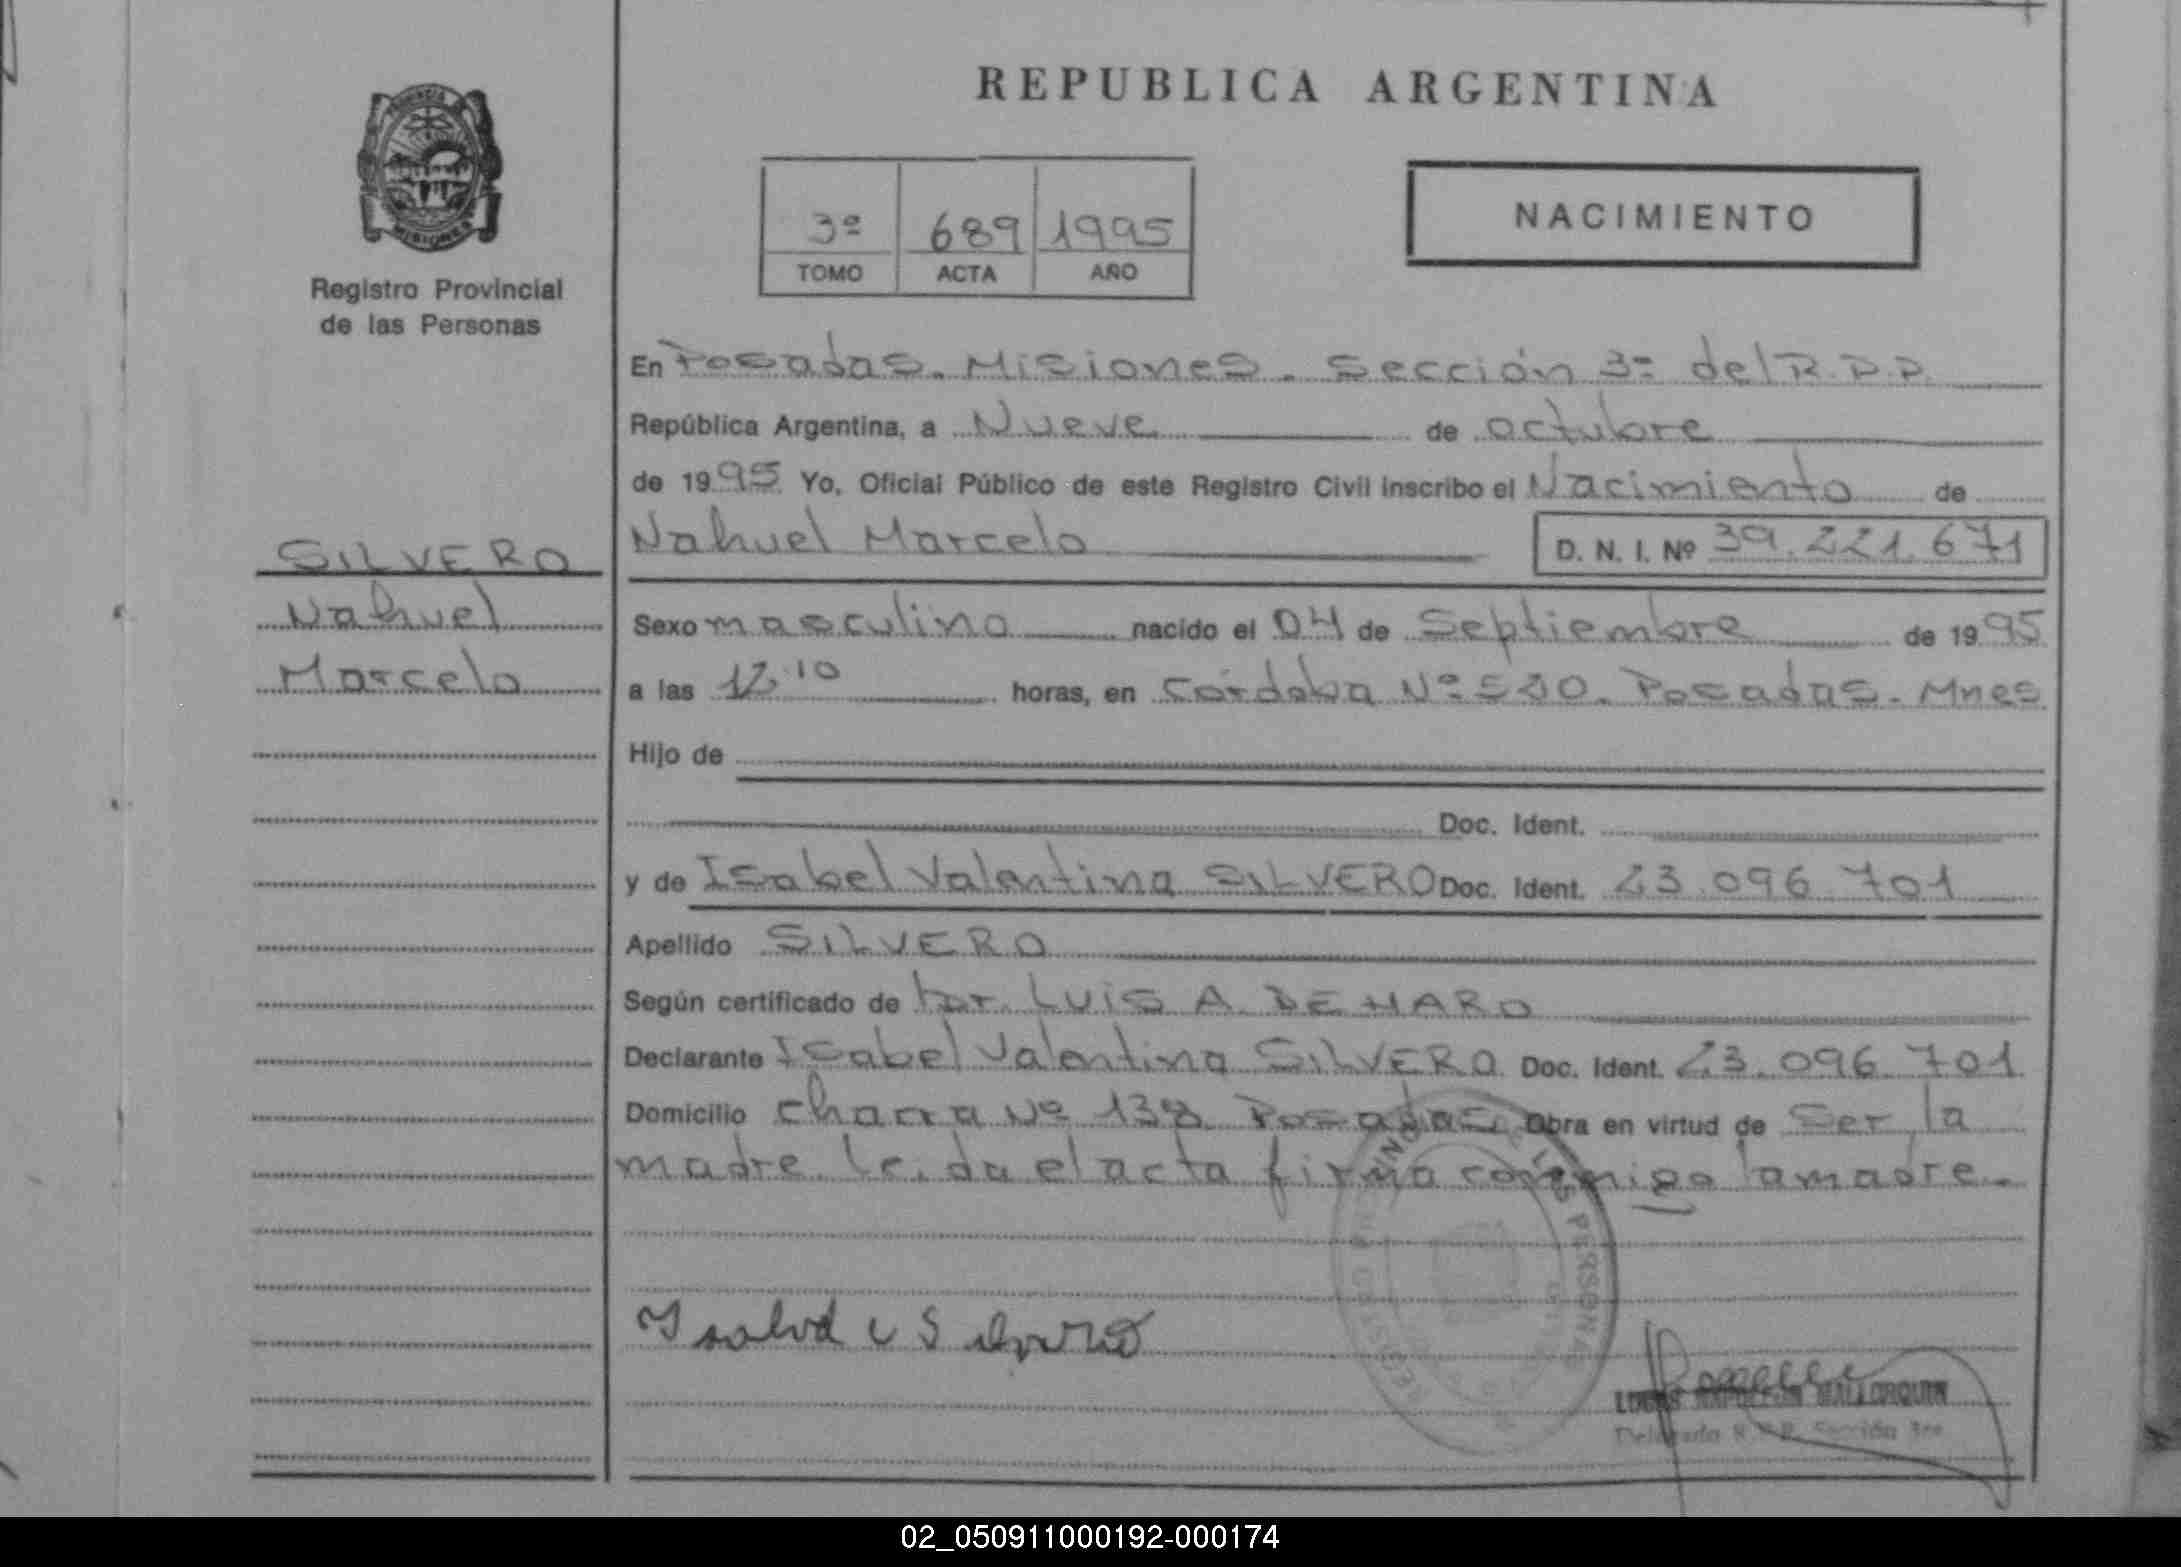 REPUBLICA ARGENTINA
PROVINCIA
MISIONES
Registro Provincial
de las Personas
3º 689 1995
TOMO ACTA AÑO
NACIMIENTO
En Posadas. Misiones. Sección 3ª del R.P.P.
República Argentina, a Nueve de octubre
de 1995 Yo, Oficial Público de este Registro Civil inscribo el Nacimiento de
Nahuel Marcelo D. N. I. Nº 39.221.671
SILVERO
Nahuel
Marcelo
Sexo masculino nacido el 04 de Septiembre de 1995
a las 12.10 horas, en Córdoba Nº 530. Posadas. Mnes
Hijo de
Doc. Ident.
y de Isabel Valentina SILVERO Doc. Ident. 23.096.701
Apellido SILVERO
Según certificado de Dr. LUIS A. DE HARO
Declarante Isabel Valentina SILVERO Doc. Ident. 23.096.701
Domicilio Chacra Nº 138 Posadas Obra en virtud de Ser la
madre. Leida el acta firma conmigo la madre.
Isabel V Silvero
MALLORQUIN
Delegada R.P.P. Sección 3ra
02_050911000192-000174